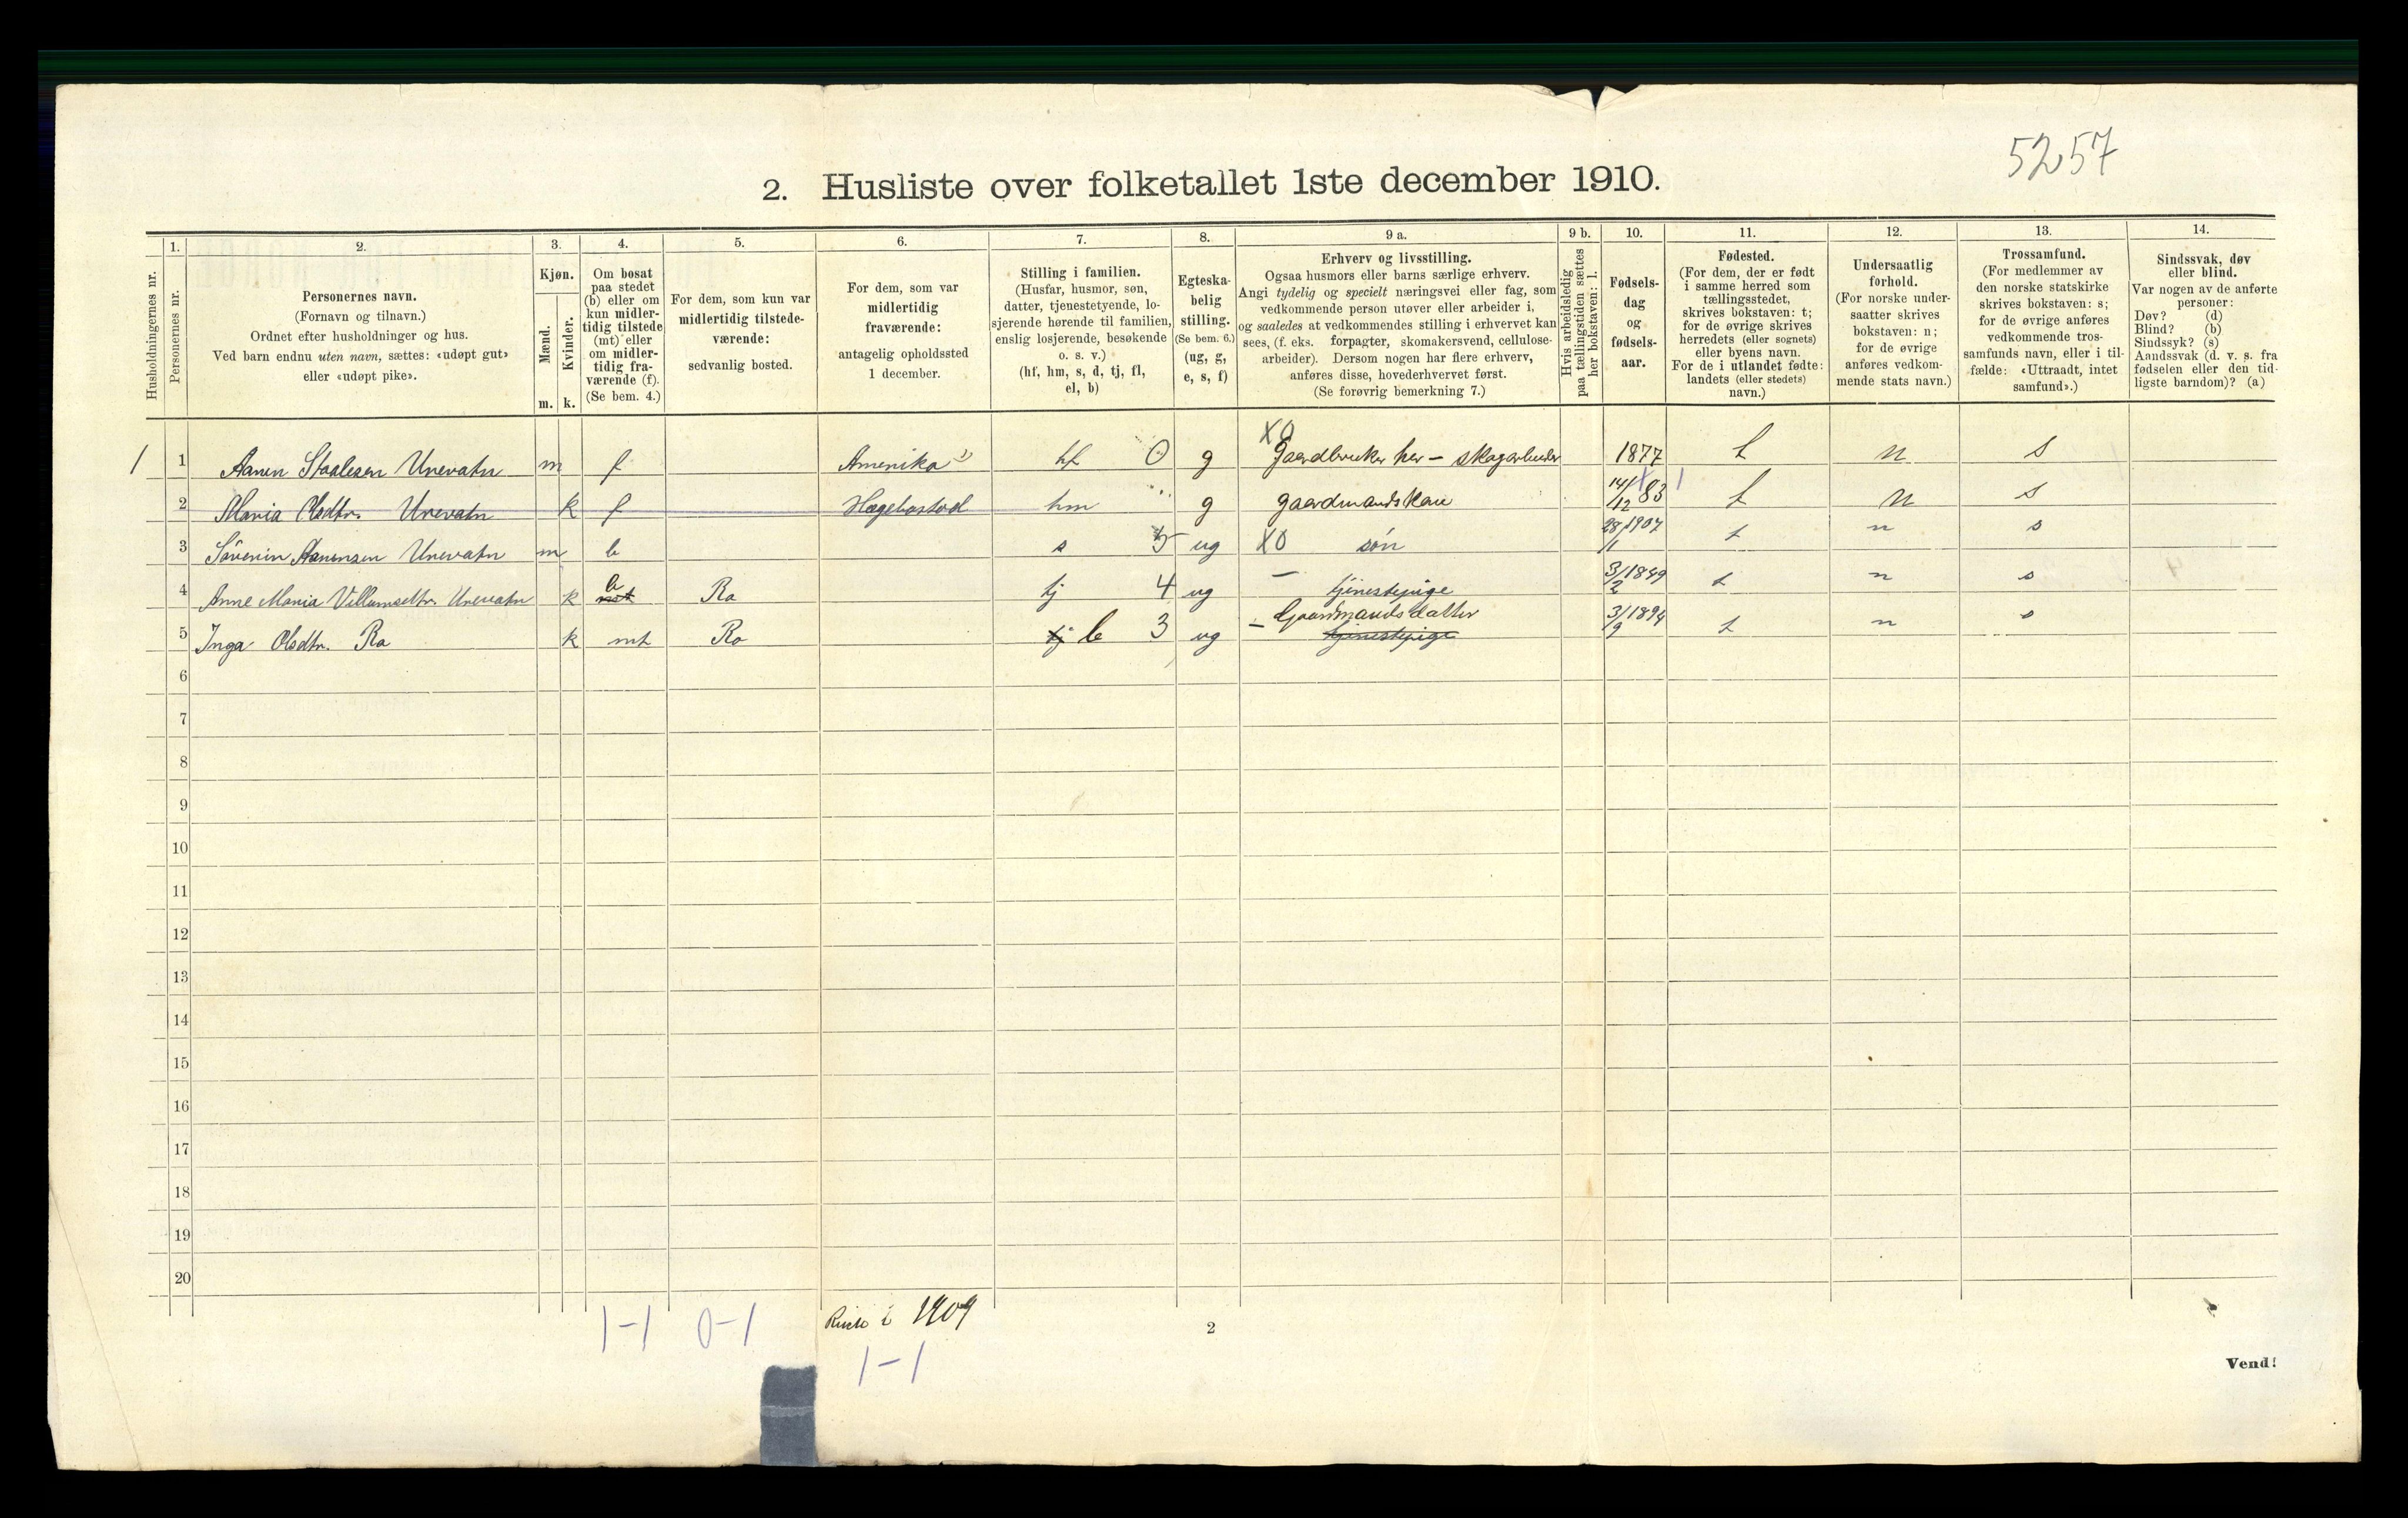 5257
2. Husliste over folketallet 1ste december 1910.
Husholdningernes nr.
1.
Personernes nr.
2.
Personernes navn.
(Fornavn og tilnavn.)
Ordnet efter husholdninger og hus.
Ved barn endnu uten navn, sættes: «udøpt gut»
eller «udøpt pike».
3.
Kjøn.
Mænd.
m.
Kvinder.
k.
4.
Om bosat
paa stedet
(b) eller om
kun midler-
tidig tilstede
(mt) eller
om midler-
tidig fra-
værende (f).
(Se bem. 4.)
5.
For dem, som kun var
midlertidig tilstede-
værende:
sedvanlig bosted.
6.
For dem, som var
midlertidig
fraværende:
antagelig opholdssted
1 december.
7.
Stilling i familien.
(Husfar, husmor, søn,
datter, tjenestetyende, lo-
sjerende hørende til familien,
enslig losjerende, besøkende
o. s. v.)
(hf, hm, s, d, tj, fl,
el, b)
8.
Egteska-
belig
stilling.
(Se bem. 6.)
(ug, g,
e, s, f)
9 a.
Erhverv og livsstilling.
Ogsaa husmors eller barns særlige erhverv.
Angi tydelig og specielt næringsvei eller fag, som
vedkommende person utøver eller arbeider i,
og saaledes at vedkommendes stilling i erhvervet kan
sees, (f. eks. forpagter, skomakersvend, cellulose-
arbeider). Dersom nogen har flere erhverv,
anføres disse, hovederhvervet først.
(Se forøvrig bemerkning 7.)
9 b.
Hvis arbeidsledig
paa tællingstiden sættes
her bokstaven: l.
10.
Fødsels-
dag
og
fødsels-
aar.
11.
Fødested.
(For dem, der er født
i samme herred som
tællingsstedet,
skrives bokstaven: t;
for de øvrige skrives
herredets (eller sognets)
eller byens navn.
For de i utlandet fødte:
landets (eller stedets)
navn.)
12.
Undersaatlig
forhold.
(For norske under-
saatter skrives
bokstaven: n;
for de øvrige
anføres vedkom-
mende stats navn.)
13.
Trossamfund.
(For medlemmer av
den norske statskirke
skrives bokstaven: s;
for de øvrige anføres
vedkommende tros-
samfunds navn, eller i til-
fælde: «Uttraadt, intet
samfund».)
14.
Sindssvak, døv
eller blind.
Var nogen av de anførte
personer:
Døv? (d)
Blind? (b)
Sindssyk? (s)
Aandssvak (d. v. s. fra
fødselen eller den tid-
ligste barndom)? (a)
1 1 Aanen Staalesen Unevatn m f Amerika 1) hf 0 g X0 Gaardbruker her - skogarbeider 1877 t n s
2 Maria Olsdtr. Unevatn k f Hægebostad hm g gaardmandskone 14/12 83 t n s
3 Søverin Aanensen Unevatn m b s 5 ug X0 søn 28/1 1907 t n s
4 Anne Maria Villumsdtr. Unevatn k mt b Ro tj 4 ug - tjenestepige 3/2 1849 t n s
5 Inga Olsdtr. Ro k mt Ro tj b 3 ug - Gaardmandsdatter tjenestepige 3/9 1894 t n s
6
7
8
9
10
11
12
13
14
15
16
17
18
19
20
1-1 0-1 Reiste i 1909
1-1
2
Vend!